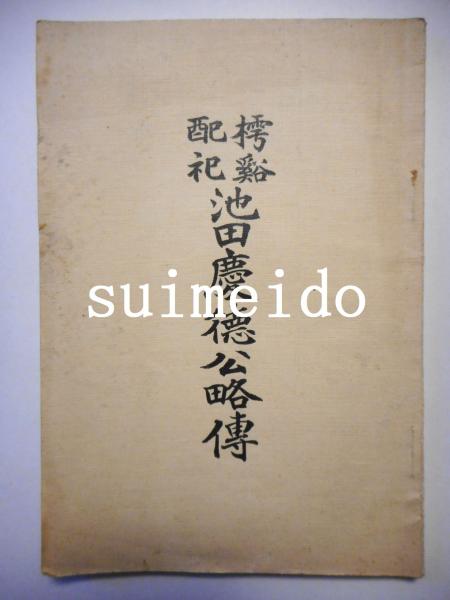 樗谿
配祀
池田慶德公略傳
suimeido